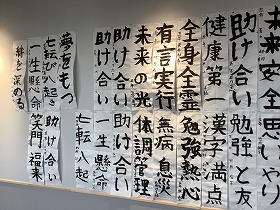 安全
思いやり
助け合い
健康第一
全身全霊
有言実行
未来の光
助け合い
助け合い
夢をもつ
七転び八起き
一生懸命
絆を深める
勉強と友
漢字満点
勉強熱心
無病息災
体調管理
助け合い
一生懸命
七転八起
助け合い
笑門福来